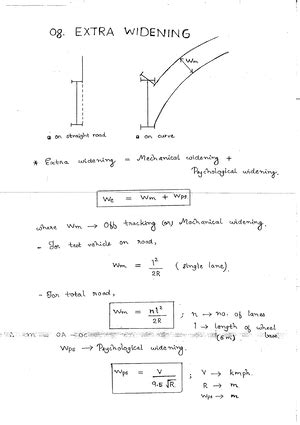 08. EXTRA WIDENING
Wm
@ on straight road
@ on curve
* Extra widening = Mechanical widening +
Psychological widening.
We = Wm + Wps
where Wm → Off tracking (or) Machanical widening.
- For test vehicle on road,
Wm = l²/2R (single lane).
- For total road,
Wm = nl²/2R ; n → no. of lanes
l → length of wheel
(6m) base.
Wps → Psychological widening.
Wps = V/9.5√R ; V → kmph.
R → m
Wps → m